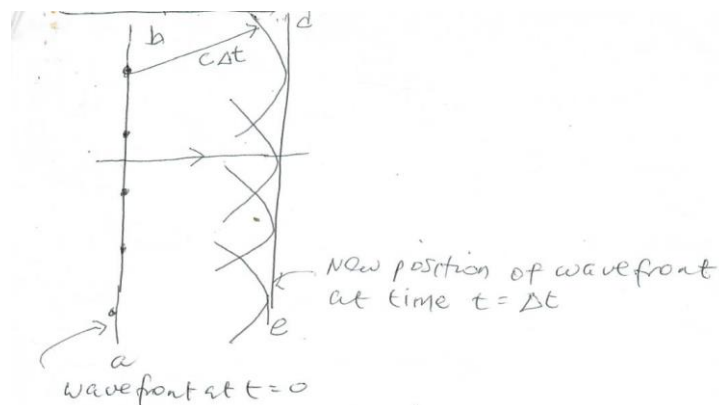 b
d
cΔt
New position of wavefront
at time t = Δt
e
a
wavefront at t = 0